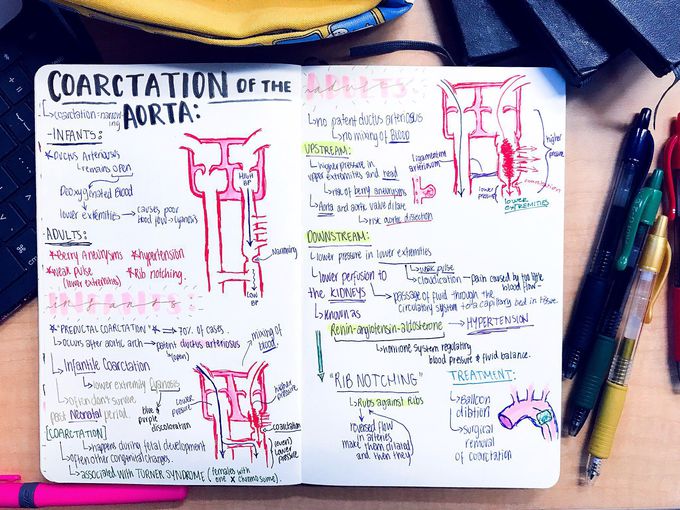 COARCTATION OF THE
AORTA:
↳coarctation-narrow-
ing
-INFANTS:
*Ductus Arteriosus
↳remains open
Deoxygenated Blood
↳lower extremities → causes poor
blood flow → cyanosis
-ADULTS:
*Berry Aneurysms *hypertension
*weak pulse *Rib notching.
(lower extremities)
HIGH
BP
Narrowing
LOW
BP
infants
*"PREDUCTAL COARCTATION"* ⟹ 70% of cases
↳occurs after aortic arch → patent ductus arteriosus
(open)
↳Infantile Coarctation
↳lower extremity Cyanosis
↳Often don't survive
past Neonatal period.
blue &
purple
discoloration
[COARCTATION]
↳happens during fetal development
↳often other congenital changes.
↳associated with TURNER SYNDROME (females with
one X chromosome).
mixing of
blood
lower
pressure
higher
pressure
coarctation
(even)
lower
pressure
ADULTS
adults
↳no patent ductus arteriosus
↳no mixing of BLOOD
UPSTREAM:
↳higher pressure in
upper extremities and head
↳risk of berry aneurysms
↳Aorta and aortic valve dilate
↳risk aortic dissection
ligamentum
arteriosum
higher
pressure
coarctation
lower
pressure
lower
EXTREMITIES
DOWNSTREAM:
↳lower pressure in lower extremities
↳weak pulse
↳claudication → pain caused by too little
blood flow
↳lower perfusion to
the KIDNEYS
→ passage of fluid through the
circulatory system to a capillary bed in tissue.
↳known as
Renin-angiotensin-aldosterone → HYPERTENSION
↳hormone system regulating
blood pressure & fluid balance.
"RIB NOTCHING"
↳Rubs against Ribs
reversed flow
in arteries
make them dilated
and then they
TREATMENT:
↳Balloon
dilation
↳surgical
removal
of coarctation